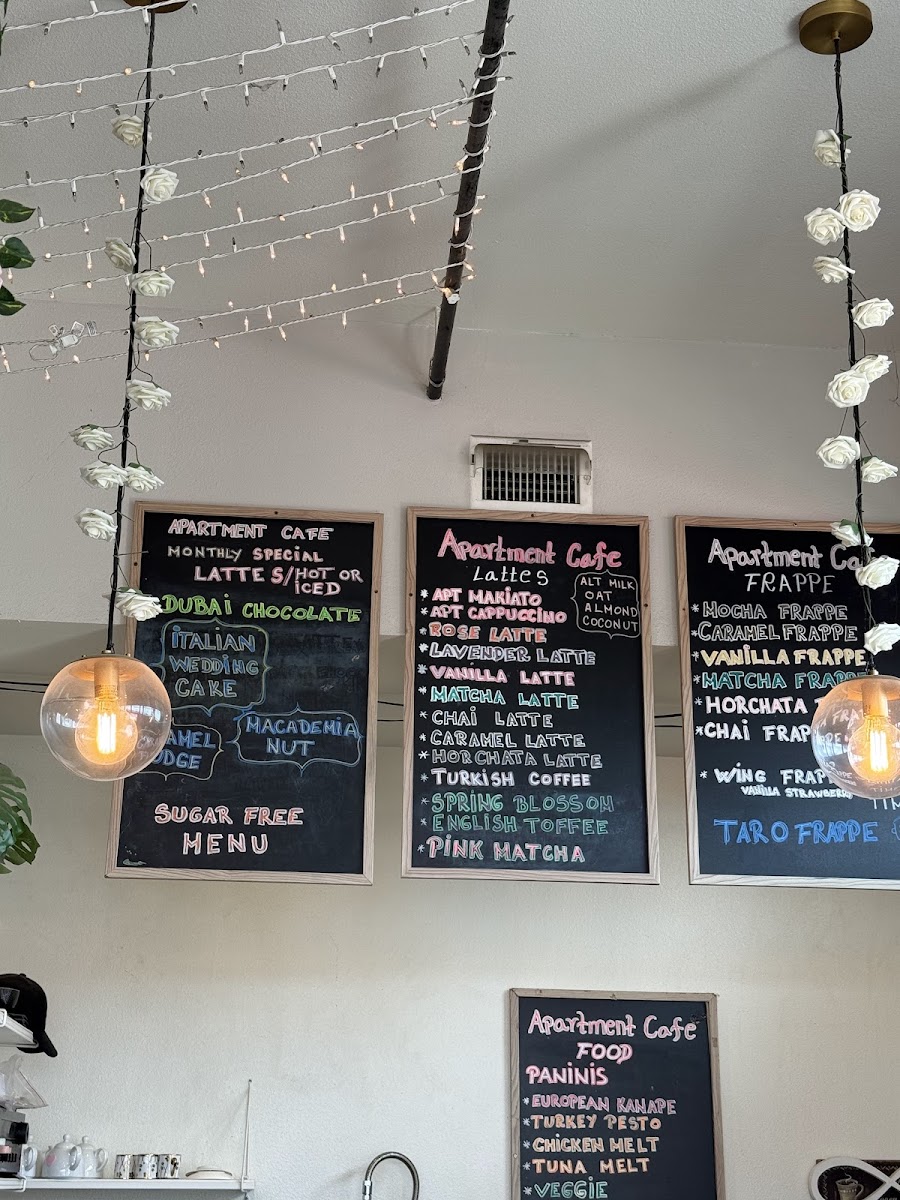 APARTMENT CAFE
MONTHLY SPECIAL
LATTES/HOT OR
ICED
DUBAI CHOCOLATE
ITALIAN
WEDDING
CAKE
MACADEMIA
NUT
SUGAR FREE
MENU
Apartment Cafe
Lattes
ALT MILK
OAT
ALMOND
COCONUT
* APT MAKIATO
* APT CAPPUCCINO
* ROSE LATTE
* LAVENDER LATTE
* VANILLA LATTE
* MATCHA LATTE
* CHAI LATTE
* CARAMEL LATTE
* HORCHATA LATTE
* TURKISH COFFEE
* SPRING BLOSSOM
* ENGLISH TOFFEE
* PINK MATCHA
Apartment
FRAPPE
* MOCHA FRAPPE
* CARAMEL FRAPPE
* VANILLA FRAPPE
* MATCHA FRAPPE
* HORCHATA
* CHAI
* WING
VANILLA STRAWBERRY
TARO FRAPPE
Apartment Cafe
FOOD
PANINIS
* EUROPEAN KANAPE
* TURKEY PESTO
* CHICKEN MELT
* TUNA MELT
* VEGGIE